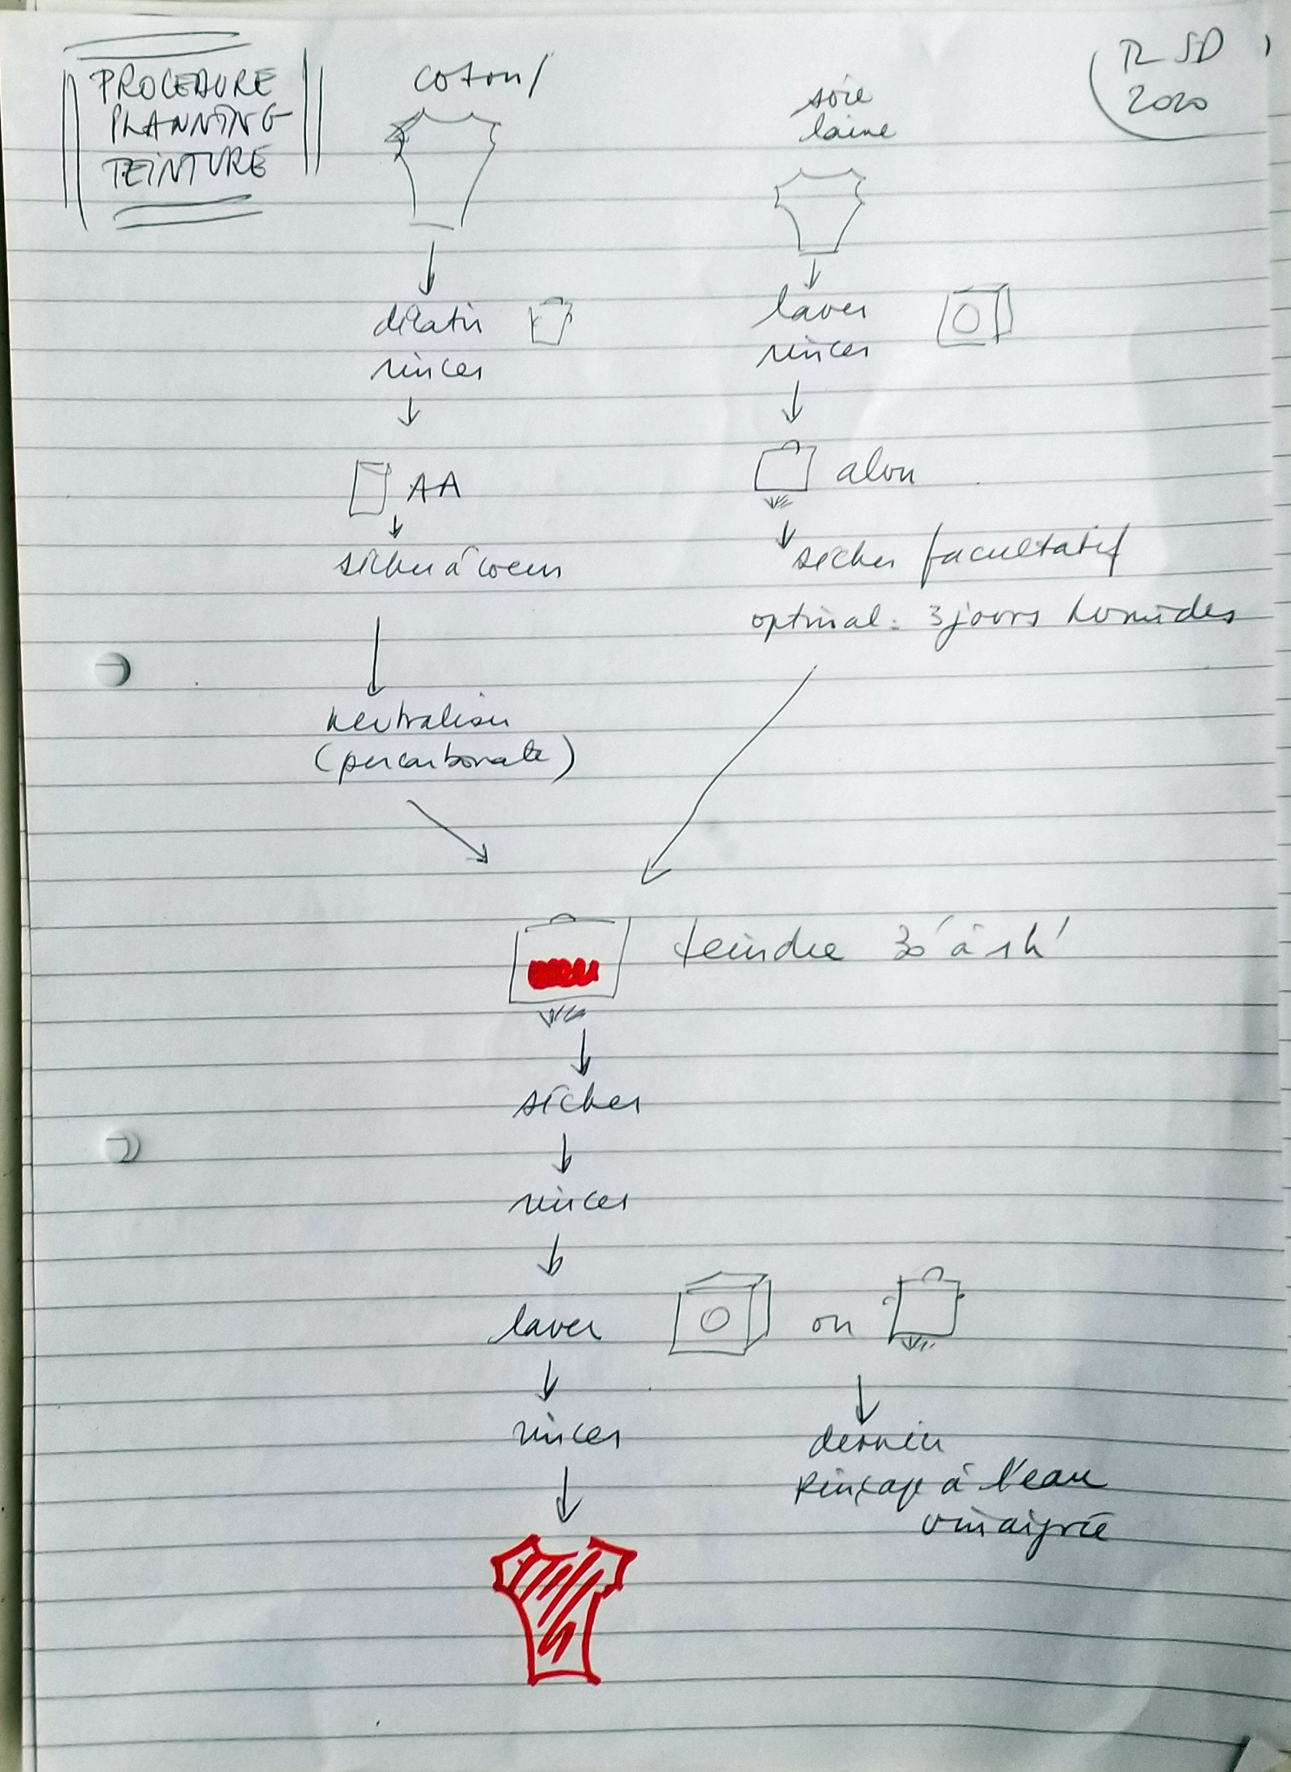 PROCEDURE
PLANNING
TEINTURE
coton/
soie
laine
SD
2020
décatir
rincer
laver
rincer
AA
alun
sécher à coeur
sécher facultatif
optimal: 3 jours humides
neutraliser
(percarbonate)
teindre 30' à 1h'
sécher
rincer
laver
ou
rincer
dernier
Rinçage à l'eau
vinaigrée